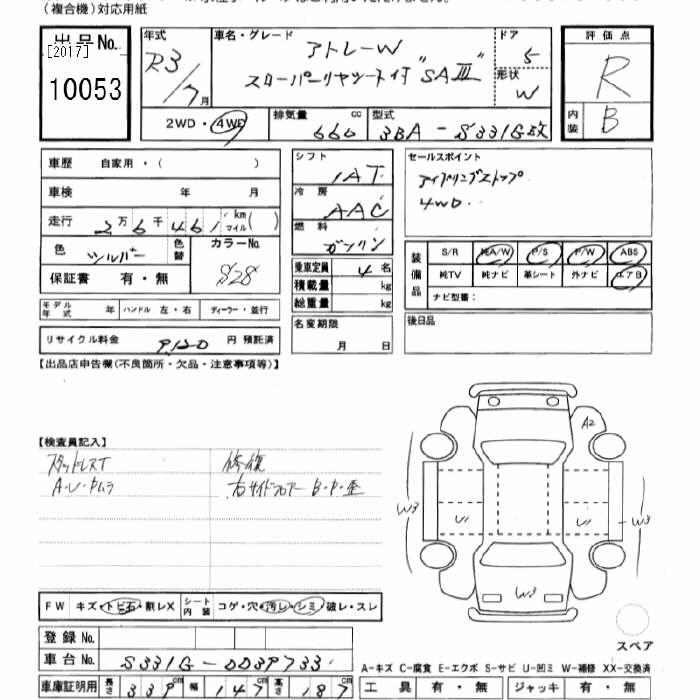 (複合機)対応用紙
出品No.
[2017]
10053
年式
R3/7月
車名・グレード
アトレーW
スローパーリヤシート付 "SAⅢ"
ドア
5
形状
W
評価点
R
内装
B
2WD・4WD
排気量
660 cc
型式
3BA-S331G改
車歴 自家用・( )
車検 年 月
走行 2万6千461 km マイル( )
色 シルバー 色替
カラーNo. S28
保証書 有・無
モデル年式 年 ハンドル 左・右 ディーラー・並行
リサイクル料金 9,120 円 預託済
シフト
IAT
冷房
AAC
燃料
ガソリン
乗車定員 4名
積載量 kg
総重量 kg
名変期限
月 日
セールスポイント
アイドリングストップ
4WD
装備品
S/R 純A/W P/S P/W ABS
純TV 純ナビ 革シート 外ナビ エアB
ナビ型番:
後日品
【出品店申告欄(不良箇所・欠品・注意事項等)】
【検査員記入】
スタッドレスT
A・U・ムラ
修復
右サイドフロアー B・P・歪
A2
W3
U
U
W3
W3
スペア
FW キズ・トビ石・割レX
シート内装 コゲ・穴・汚レ・シミ・破レ・スレ
登録No.
車台No. S331G-0039733
車庫証明用 長さ 339cm 幅 147cm 高さ 187cm
A-キズ C-腐食 E-エクボ S-サビ U-凹ミ W-補修 XX-交換済
工具 有・無 ジャッキ 有・無